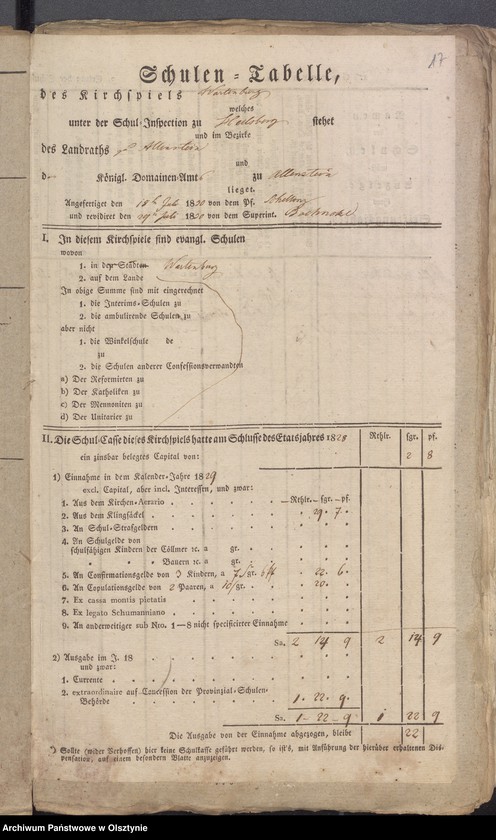 17
Schulen-Tabelle,
des Kirchspiels Wartenburg
welches
unter der Schul-Inspection zu Heilsberg stehet
und im Bezirke
des Landraths zu Allenstein
und
d Königl. Domainen-Amt zu Allenstein
lieget.
Angefertiget den 18ten Juli 1830 von dem Pf.
und revidiret den 29ten Juli 1830 von dem Superint.
I. In diesem Kirchspiele sind evangl. Schulen
wovon
1. in der Städten Wartenburg
2. auf dem Lande
In obige Summe sind mit eingerechnet
1. die Interims-Schulen zu
2. die ambulirende Schulen zu
aber nicht
1. die Winkelschule de
zu
2. die Schulen anderer Confessionsverwandten
a) Der Reformirten zu
b) Der Katholiken zu
c) Der Mennoniten zu
d) Der Unitarier zu
II. Die Schul-Casse dieses Kirchspiels hatte am Schlusse des Etatsjahres 1828 Rthlr. sgr. pf.
ein zinsbar belegtes Capital von: 2 8
1) Einnahme in dem Kalender-Jahre 1829
excl. Capital, aber incl. Interessen, und zwar:
1. Aus dem Kirchen-Aerario . . . . . . . — Rthlr. — sgr. — pf.
2. Aus dem Klingsäckel . . . . . . . 29. 7.
3. An Schul-Strafgeldern
4. An Schulgelde von
schulfähigen Kindern der Cöllmer ꝛc. a gr.
" " " Bauern ꝛc. a gr.
5. An Confirmationsgelde von 3 Kindern, a 7 gr. 6 pf 22. 6.
6. An Copulationsgelde von 2 Paaren, a 10 gr. 20.
7. Ex cassa montis pietatis
8. Ex legato Schumanniano
9. An anderweitiger sub Nro. 1—8 nicht specificirter Einnahme
Sa. 2 14 9 2 14 9
2) Ausgabe im J. 18
und zwar:
1. Currente
2. extraordinaire auf Concession der Provinzial-Schulen-
Behörde 1. 22. 9.
Sa. 1 — 22 — 9 1 22 9
Die Ausgabe von der Einnahme abgezogen, bleibt 22
*) Sollte (wider Verhoffen) hier keine Schulkasse geführt werden, so ist's, mit Anführung der hierüber erhaltenen Dis-
pensation, auf einem besondern Blatte anzuzeigen.
Archiwum Państwowe w Olsztynie